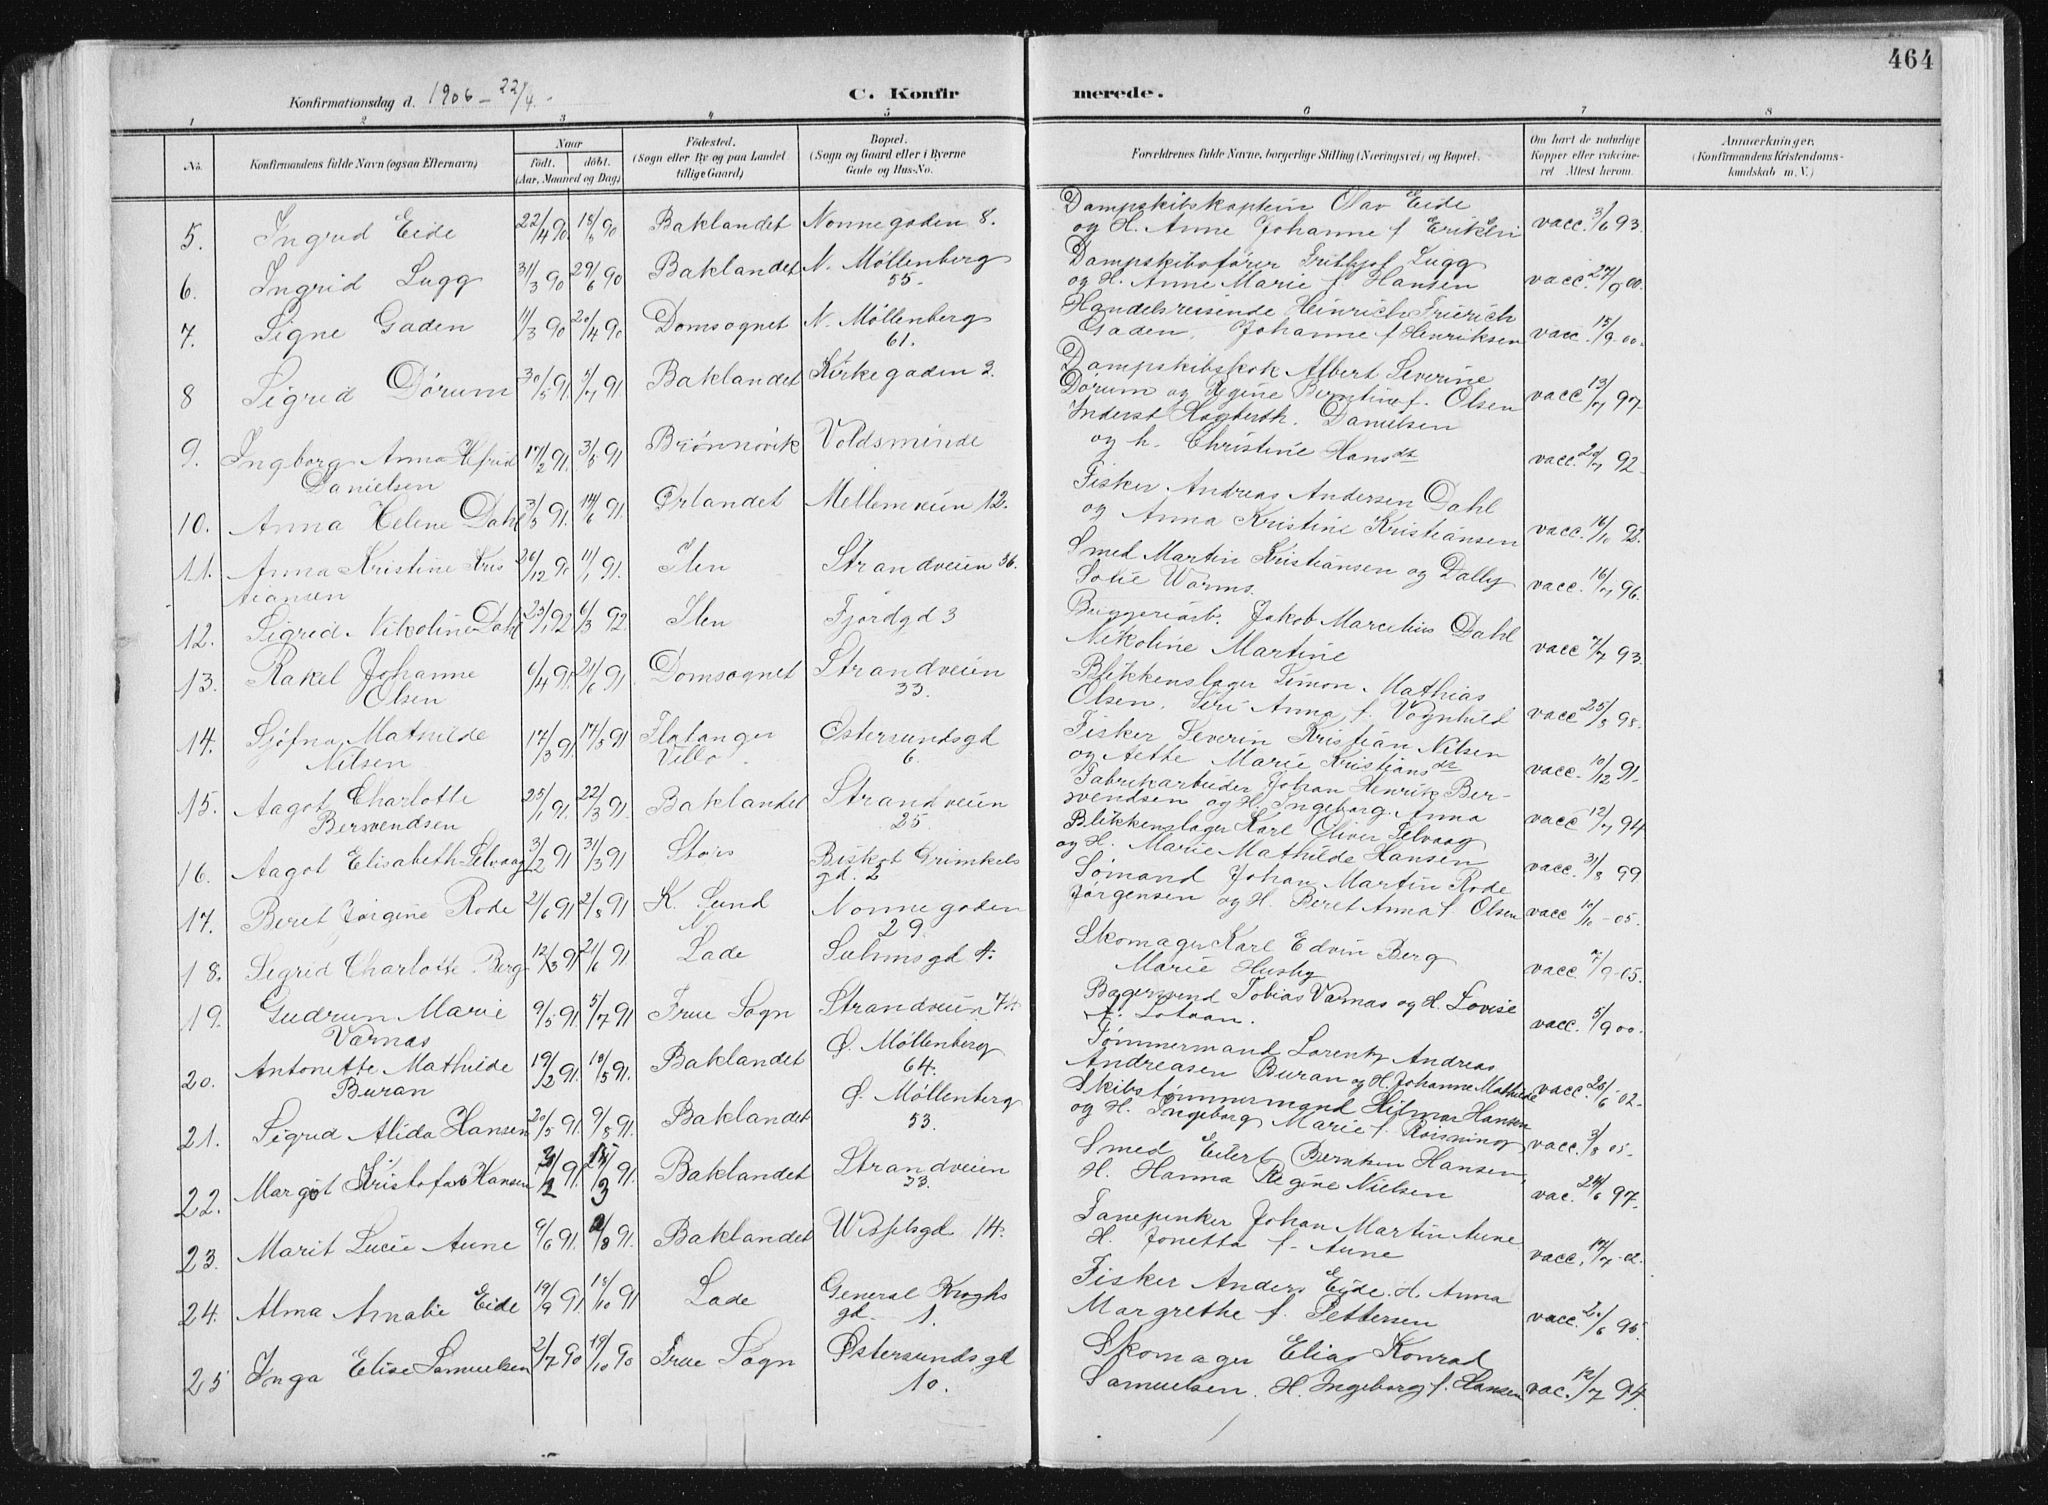 464
Konfirmationsdag d. 1906 - 22/4 -
C. Konfir merede.
1 2 3 4 5 6 7 8
No.
Konfirmandens fulde Navn (ogsaa Efternavn)
Naar
födt. döbt.
(Aar, Maaned og Dag)
Födested.
(Sogn eller By og paa Landet
tillige Gaard)
Bopæl.
(Sogn og Gaard eller i Byerne
Gade og Hus-No.
Forældrenes fulde Navne, borgerlige Stilling (Næringsvei) og Bopæl.
Om havt de naturlige
Kopper eller vakcine-
ret Attest herom.
Anmærkninger.
(Konfirmandens Kristendoms-
kundskab m. V.)
5. Ingrid Eide 22/4 90. 18/5 90 Baklandet Nonnegaden 8. Dampskibskaptein Olav Eide
og H. Anne Johanne f. vacc. 3/6 93.
6. Ingrid Lugg 31/3 90 29/6 90 Baklandet N. Møllenberg
55. Dampskibsfører Frithjof Lugg
og H. Anne Marie f. Hansen vacc. 27/9 00.
7. Signe Gaden 11/3 90 20/4 90 Domsognet N. Møllenberg
61. Handelsreisende Heinrich Frierich
Gaden, Johanne f. Henriksen vacc. 15/9 00.
8 Sigrid Dørum 30/5 91. 5/7 91 Baklandet Kirkegaden 2. Dampskibskok Albert Severine
Dørum og Regine Berntine f. Olsen vacc 13/7 97-
9. Ingborg Anna
Danielsen 17/2 91. 3/5 91 Brønnøvik Voldsminde Inderst Danielsen
og h. Christine Hansdt vacc. 20/7 92-
10. Anna Helene Dahl 3/3 91. 14/6 91. Ørlandet Mellemveien 12. Fisker Andreas Andersen Dahl
og Anna Kristine Kristiansen vacc. 16/10 92.
11. Anna Kristine Kris
tiansen 26/12 90 11/1 91. Ilen Strandveien 36. Smed Martin Kristiansen og
Sofie Worms. vacc. 16/7 96.
12. Sigrid Nikoline Dahl 23/1 92 6/3 92. Ilen Fjordgd 3 Bryggeriarb. Jakob Marcelius Dahl
Nikoline Martine vacc 7/7 93.
13. Rakel Johanne
Olsen 6/4 91. 21/6 91 Domsognet Strandveien
33. Blikkenslager Simon Mathias
Olsen, Anna f. Vognhild vacc 25/8 98.
14. Sjøfna Mathilde
Nilsen 17/3 91. 17/5 91 Flatanger
Villa. Østersundsgd
6. Fisker Severin Kristian Nilsen
og Marie Kristiansdt vacc. 10/12 91-
15. Aagot Charlotte
Bersvendsen 25/1 91. 22/3 91 Baklandet Strandveien
25. Fabrikarbeider Johan Henrik Ber-
svendsen og H. Ingeborg Anna vacc 12/7 94
16. Aagot Elisabeth Selvaag 3/2 91 31/3 91 Stors Biskop Grimkels
gd. 2 Blikkenslager Karl Oliver Selvaag
og H. Marie Mathilde Hansen vacc 31/8 99
17. Beret Jørgine Rode 21/6 91 2/8 91 K. Sund
N. Nonnegaden
29. Sømand Johan Martin Rode
Jørgensen og H. Beret Anna f. Olsen vacc 10/10 - 05.
18. Sigrid Charlotte Berg 12/3 91 21/6 91. Lade Suhmsgd 4. Skomager Karl Edvin Berg
Marie Husby vacc. 7/9 05.
19. Gudrun Marie
Varnas 9/5 91. 5/7 91 Frue Sogn Strandveien 74. Bagersvend Tobias Varnas og H. Lovise
f. vacc. 5/9 00.
20. Antonette Mathilde
Buran 19/2 91. 10/5 91. Baklandet Ø. Møllenberg
64. Tømmermand Lorentz Andreas
Andreasen Buran og H. Johanne Mathilde vacc. 20/6 02-
21. Sigrid Alida Hansen 20/5 91. 9/8 91. Baklandet Ø. Møllenberg
53. Skibstømmermand Hilmar Hansen
og H. Ingeborg Marie f. vacc. 3/8 05-
22. Margot Kristofa Hansen 91. 91. Baklandet Strandveien
33. Smed Eilert Berntsen Hansen,
H. Hanna Regine Nielsen vac. 24/6 97.
23. Marit Lucie Aune 9/6 91. 2/8 91. Baklandet Wesselsgd 14. Johan Martin Aune
H. Jonetta f. Aune vacc. 17/7 02.
24. Alma Amalie Eide 19/9 91 18/10 91 Lade General Kroghs
gd. 1. Fisker Anders Eide. H. Anna
Margrethe f. Pettersen vacc. 20/6 95.
25 Inga Elise Samuelsen 2/7 90 19/10 90 Frue Sogn Østersundsgd
10. Skomager Elias Konrad
Samuelsen. H. Ingeborg f. Hansen vac. 12/7 94.